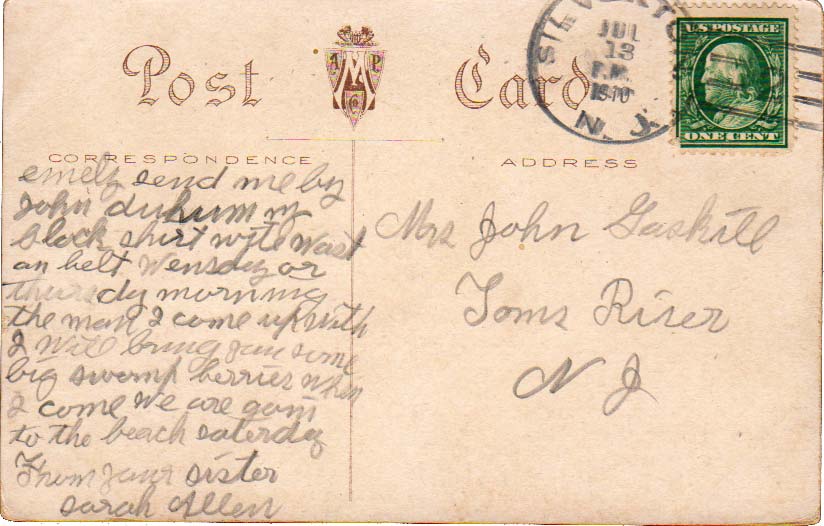 Post Card
SILVERTO
JUL
13
P.M.
1910
N. J.
U.S. POSTAGE
ONE CENT
A M P C
CORRESPONDENCE
ADDRESS
emely send me by
John duhumm my
black shirt wite wast
an belt Wensday or
thursdy morning
the man I come up with
I will bring you some
big swamp berries when
I come We are goni
to the beach saterday
From your sister
sarah Allen
Mrs John Gaskill
Toms River
N J